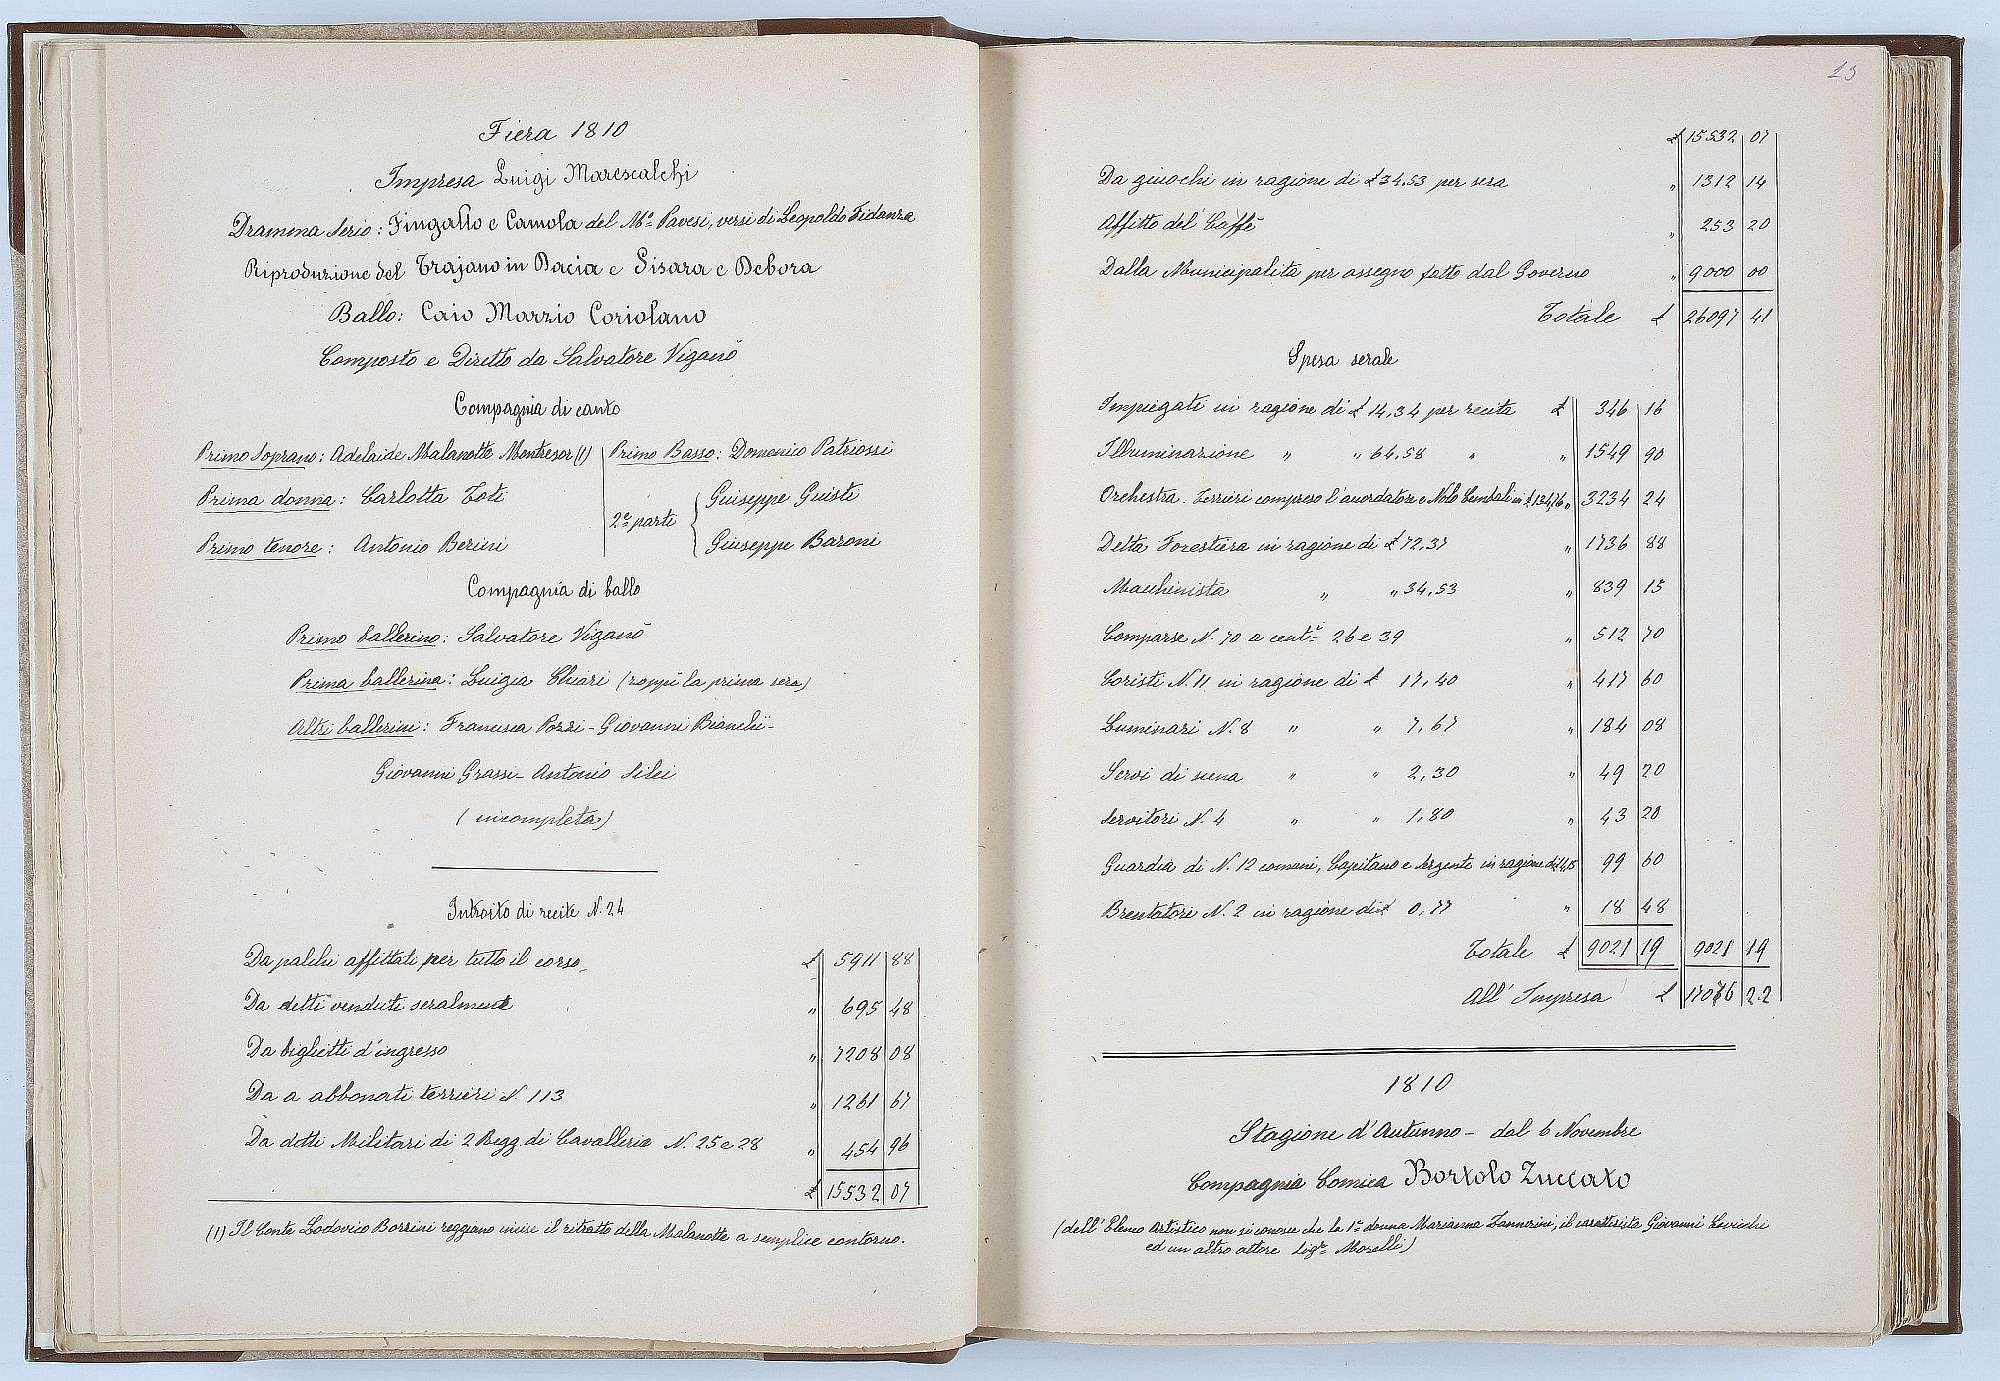 Fiera 1810
Impresa Luigi Marescalchi
Dramma Serio: Fingallo e Camola del Mº Pavesi, versi di Leopoldo Fidanza
Riproduzione del Trajano in Dacia e Sisara e Debora
Ballo: Caio Marzio Coriolano
Composto e Diretto da Salvatore Viganò
Compagnia di canto
Primo Soprano: Adelaide Malanotte Montresor (1)
Prima donna: Carlotta Toti
Primo tenore: Antonio Berini
Primo Basso: Domenico Patriossi
2e parti { Guiseppe Guisti
Giuseppe Baroni
Compagnia di ballo
Primo ballerino: Salvatore Viganò
Prima ballerina: Luigia Chiari (zoppì la prima sera)
Altri ballerini: Francesca Pozzi - Giovanni Bianchi -
Giovanni Grassi - Antonio Silei
(incompleta)
Introito di recite N. 24
Da palchi affittati per tutto il corso £ 5911 88
Da detti venduti seralmente " 695 48
Da biglietti d'ingresso " 7208 08
Da a abbonati terrieri N. 113 " 1261 67
Da detti Militari di 2 Regg. di Cavalleria N. 25 e 28 " 454 96
£ 15532 07
(1) Il Conte Lodovico Borzini reggiano incise il ritratto della Malanotte a semplice contorno.
13
£ 15532 07
Da giuochi in ragione di £ 34,53 per sera " 1312 14
Affitto del Caffè " 253 20
Dalla Municipalita per assegno fatto dal Governo " 9000 00
Totale £ 26097 41
Spesa serale
Impiegati in ragione di £ 14,34 per recita £ 346 16
Illuminazione " " 64,58 " " 1549 90
Orchestra. Terrieri compreso l'accordatore e Nolo Cembali in £ 134,76 " 3234 24
Detta Forestiera in ragione di £ 72,37 " 1736 88
Macchinista " " 34,53 " 839 15
Comparse N. 70 a cent. 26 e 39 " 512 70
Coristi N. 11 in ragione di £ 17,40 " 417 60
Luminari N. 8 " " 7,67 " 184 08
Servi di scena " " 2,30 " 49 20
Servitori N. 4 " " 1,80 " 43 20
Guardia di N. 12 comuni, Capitano e Sergente in ragione di £ 4,15 99 60
Brentatori N. 2 in ragione di £ 0,77 " 18 48
Totale £ 9021 19 9021 19
All' Impresa £ 17076 22
1810
Stagione d'Autunno - dal 6 Novembre
Compagnia Comica Bortolo Zuccato
(dell' Elenco Artistico non si conosce che la 1a donna Marianna Zannerini, il caratterista Giovanni
ed un altro attore Sigr Morelli)